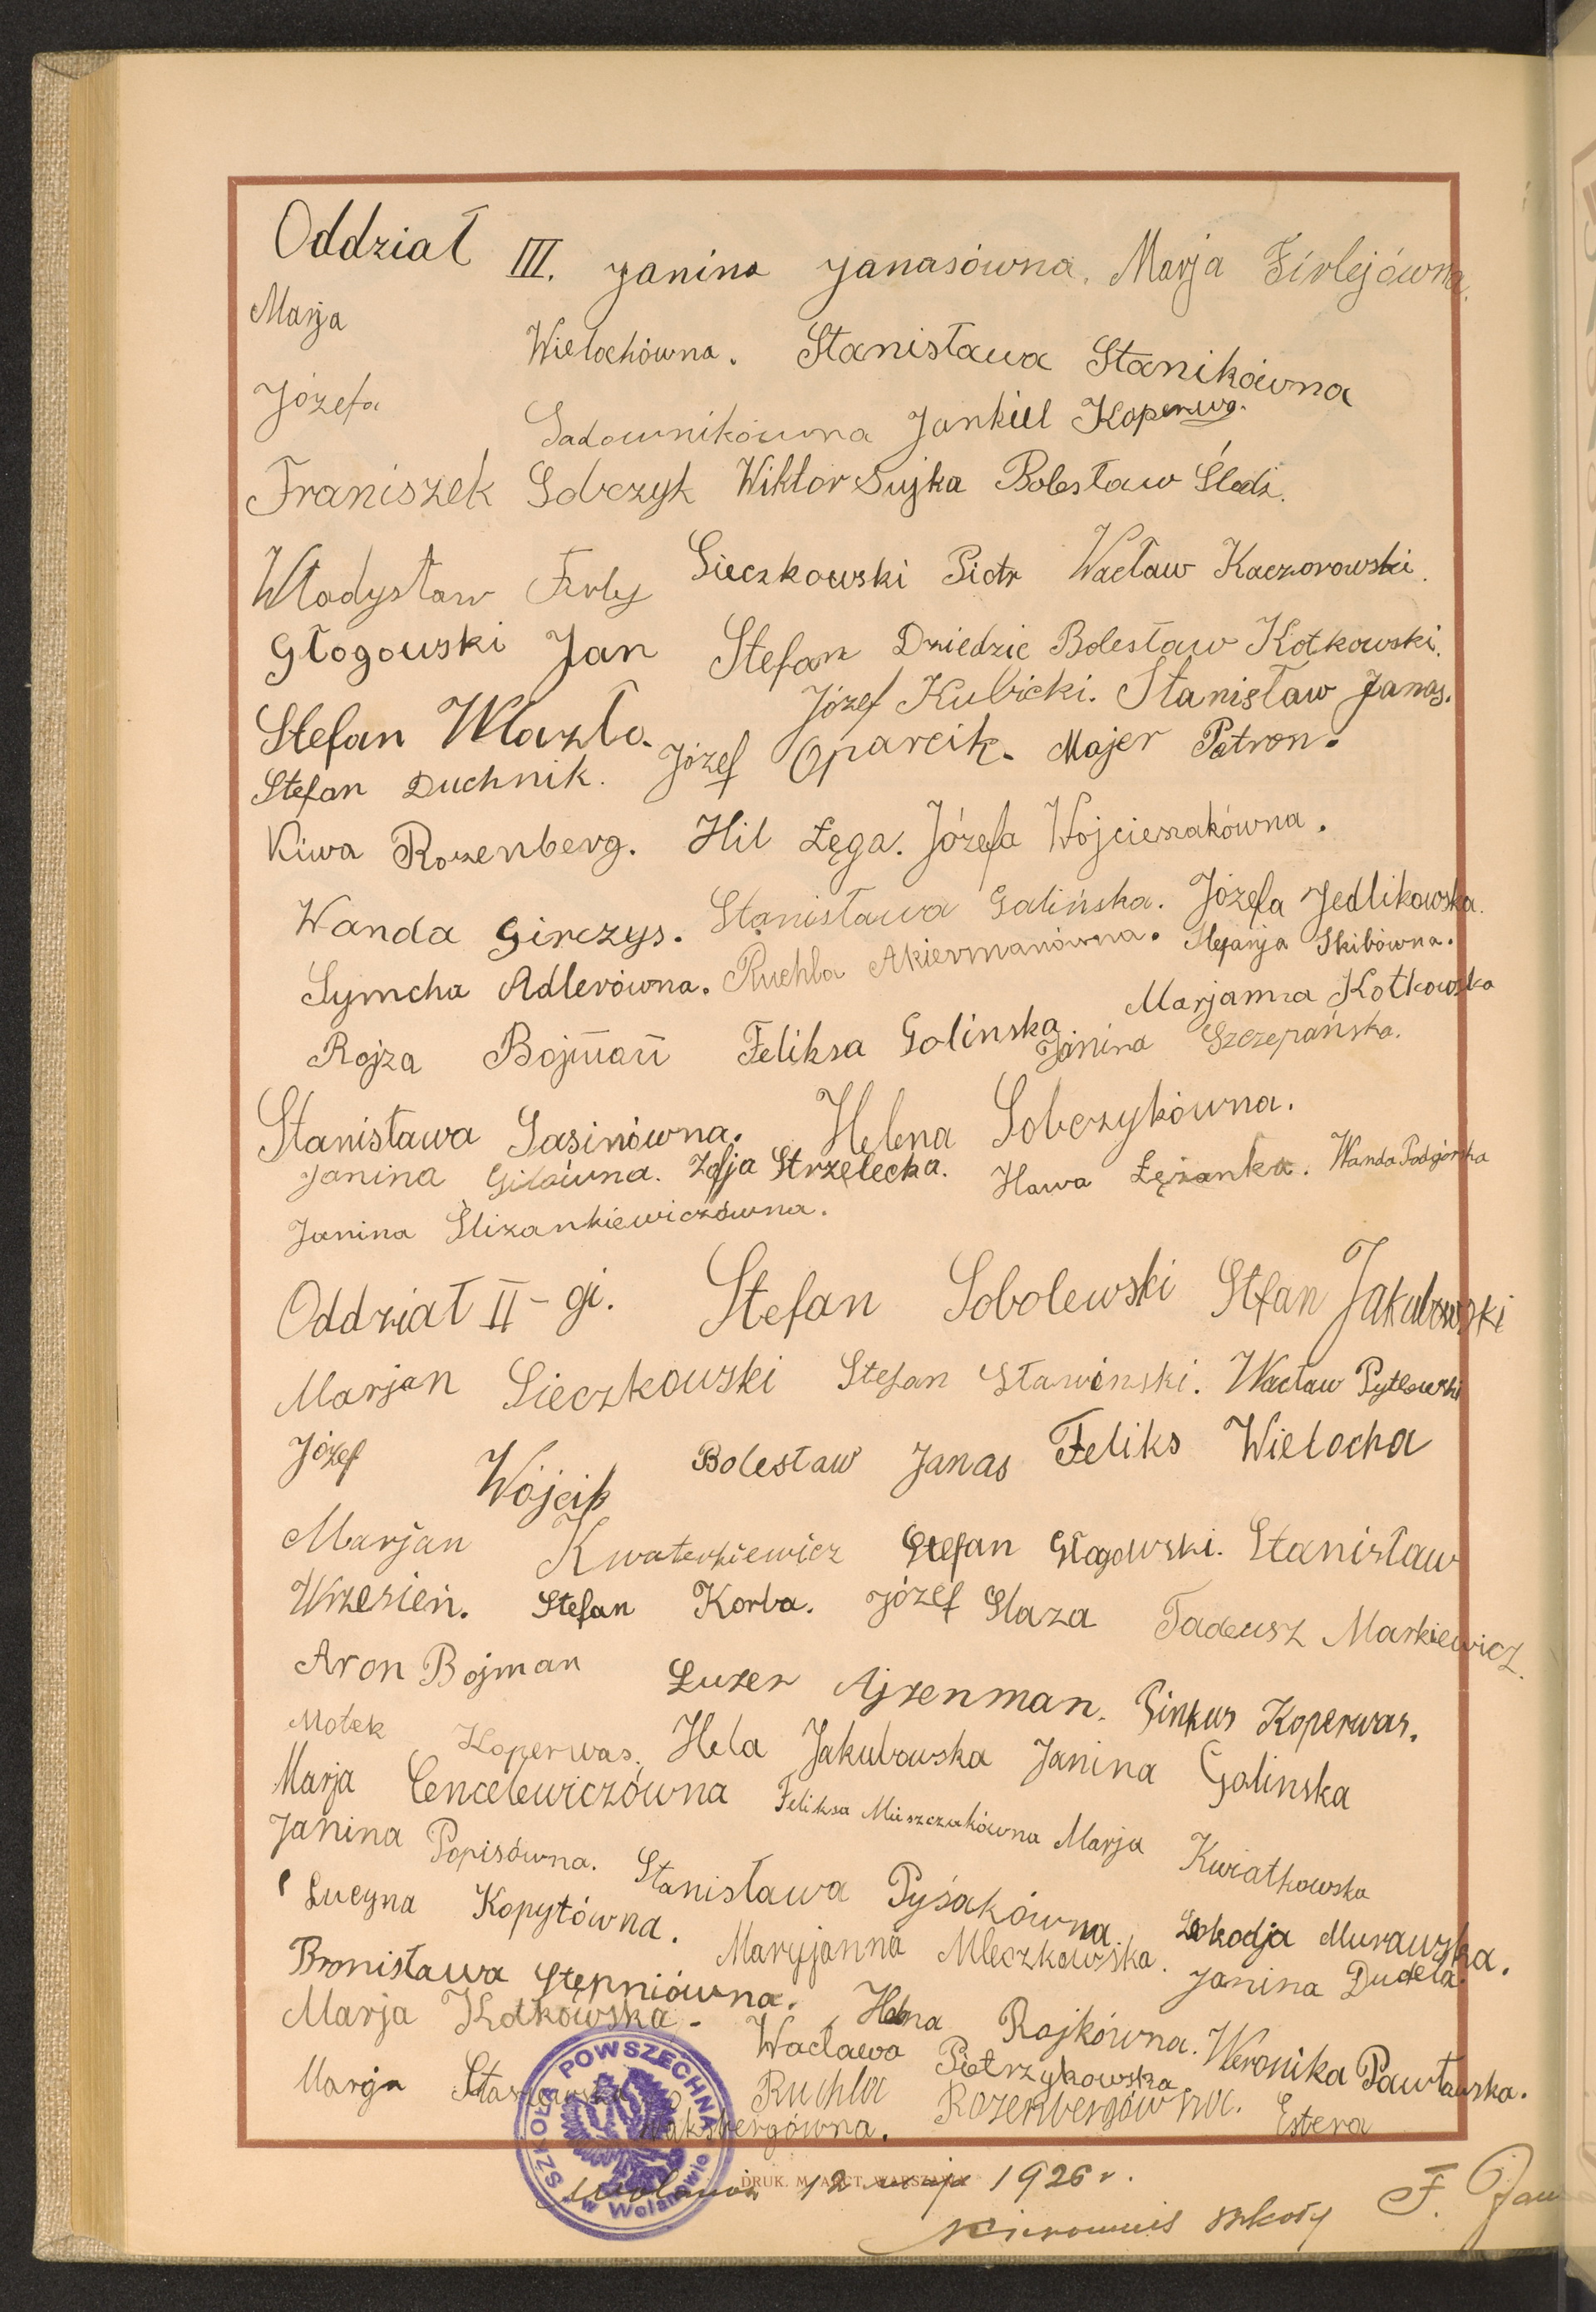 Oddział III. Janina Janasówna. Marja Firlejówna.
Marja Wielochówna. Stanisława Stanikówna
Józefa Sadownikówna Jankiel Koperwas.
Franiszek Sobczyk Wiktor Sujka Bolesław Śledź.
Władysław Firlej Sieczkowski Piotr Wacław Kaczorowski.
Głogowski Jan Stefan Dziedzic Bolesław Kotkowski.
Stefan Wlazło. Józef Kubicki. Stanisław Janas.
Stefan Duchnik. Józef Oparcik. Majer Patron.
Kiwa Rozenberg. Hil Łęga. Józefa Wojcieszakówna.
Wanda Girczys. Stanisława Galińska. Józefa Jedlikowska.
Symcha Adlerówna. Ruchla Akiermanówna. Stefanja Skibówna.
Rojza Bojman Feliksa Golinska Marjanna Kotkowska
Janina Szczepańska.
Stanisława Sasinówna. Helena Sobczykówna.
Janina Gilówna. Zofja Strzelecka. Hawa Łężanka. Wanda Podgórska
Janina Ślizankiewiczówna.
Oddział II-gi. Stefan Sobolewski Stfan Jakubowski
Marjan Sieczkowski Stefan Sławinski. Wacław Pytlewski
Józef Wójcik Bolesław Janas Feliks Wielocha
Marjan Kwaterkiewicz Stefan Głogowski. Stanisław
Wrzesień. Stefan Korba. Józef Głaza Tadeusz Markiewicz.
Aron Bojman Luzer Ajzenman. Pinkus Koperwas.
Motek Koperwas. Hela Jakubowska Janina Golinska
Marja Cencelewiczówna Feliksa Mieszczakówna Marja Kwiatkowska
Janina Popisówna. Stanisława Pyśakówna. Leokadja Murawska.
Lucyna Kopytówna. Maryjanna Mleczkowska. Janina Dudela.
Bronisława Stępniówna. Helena Rojkówna. Weronika Pawławska.
Marja Kotkowska. Wacława Pietrzykowska
Marja Ruchla Rozenbergówna. Estera
Waksbergówna.
SZKOŁA POWSZECHNA
w Wolanowie
DRUK. M. ARCT, WARSZAWA
Wolanów 12 maja 1926 r.
Kierownik szkoły F.